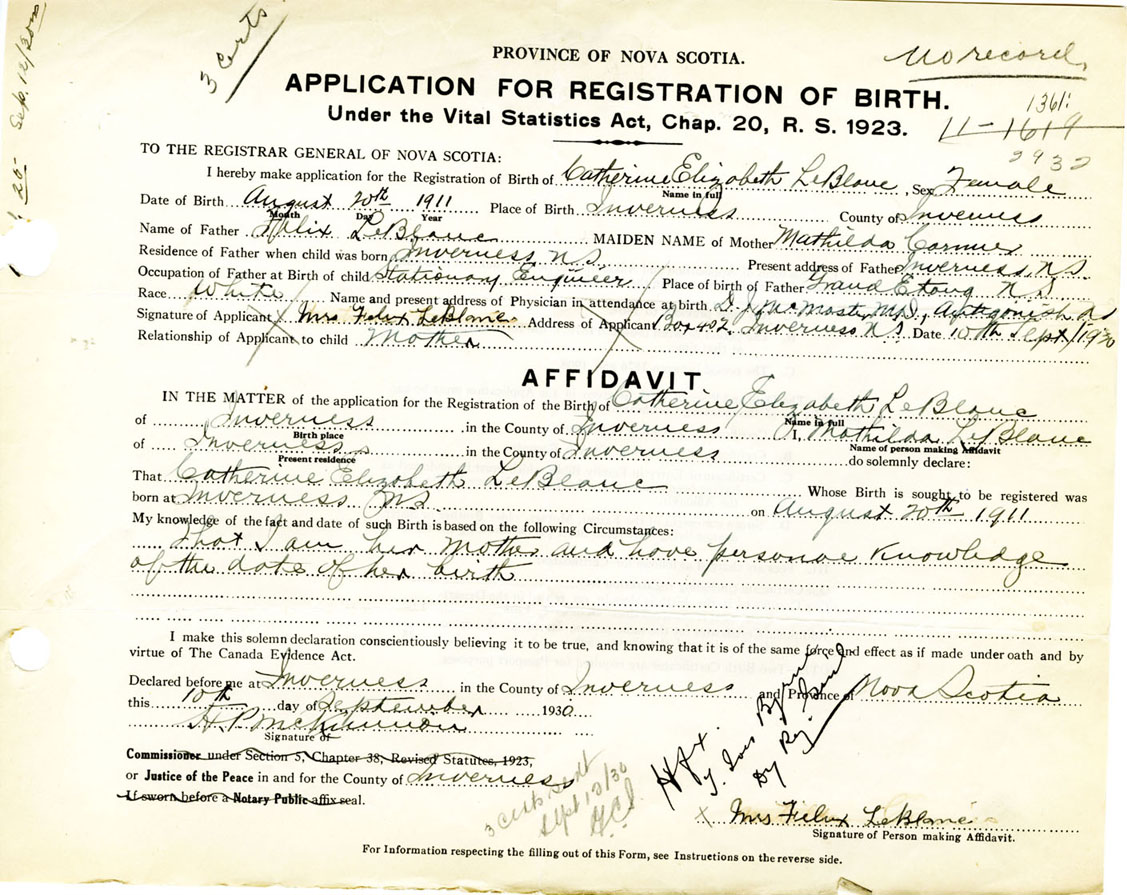 3 certs
PROVINCE OF NOVA SCOTIA.
No record.
APPLICATION FOR REGISTRATION OF BIRTH.
1361
Under the Vital Statistics Act, Chap. 20, R. S. 1923.
11-1619
2932
TO THE REGISTRAR GENERAL OF NOVA SCOTIA:
I hereby make application for the Registration of Birth of Catherine Elizabeth LeBlanc, Sex Female
Name in full
Date of Birth August 20th 1911 Place of Birth Inverness County of Inverness
Month Day Year
Name of Father Felix LeBlanc MAIDEN NAME of Mother Mathilda Cormier
Residence of Father when child was born Inverness, N.S. Present address of Father Inverness, N.S.
Occupation of Father at Birth of child Stationary Engineer Place of birth of Father Grand Etang N.S
Race White Name and present address of Physician in attendance at birth D. J. McMaster, M.D., Antigonish NS
Signature of Applicant X Mrs Felix LeBlanc Address of Applicant Box 402, Inverness N.S. Date 10th Sept/1930
Relationship of Applicant to child Mother
AFFIDAVIT
IN THE MATTER of the application for the Registration of the Birth of Catherine Elizabeth LeBlanc
Name in full
of Inverness in the County of Inverness I, Mathilda LeBlanc
Birth place Name of person making Affidavit
of Inverness in the County of Inverness do solemnly declare:
Present residence
That Catherine Elizabeth LeBlanc Whose Birth is sought to be registered was
born at Inverness N.S. on August 20th 1911
My knowledge of the fact and date of such Birth is based on the following Circumstances:
That I am her Mother and have personal knowledge
of the date of her birth
I make this solemn declaration conscientiously believing it to be true, and knowing that it is of the same force and effect as if made under oath and by
virtue of The Canada Evidence Act.
Declared before me at Inverness in the County of Inverness and Province of Nova Scotia
this 10th day of September 1930
Signature of
Commissioner under Section 5, Chapter 38, Revised Statutes, 1923,
or Justice of the Peace in and for the County of Inverness
If sworn before a Notary Public affix seal.
3 certs sent
Sept 13/30
X Mrs Felix LeBlanc
Signature of Person making Affidavit.
For Information respecting the filling out of this Form, see Instructions on the reverse side.